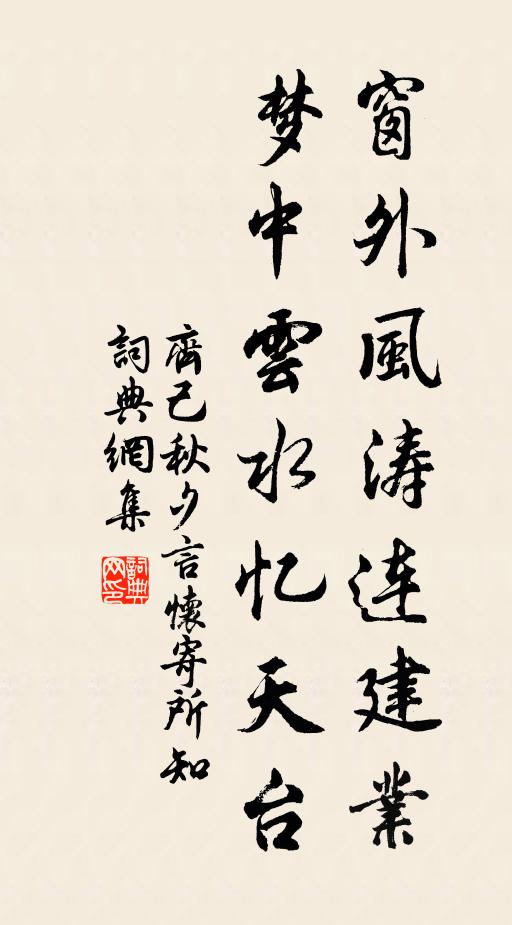 窗外風涛连建業
梦中雲水忆天台
齊己秋夕言懷寄所知
詞典網集
詞典网印